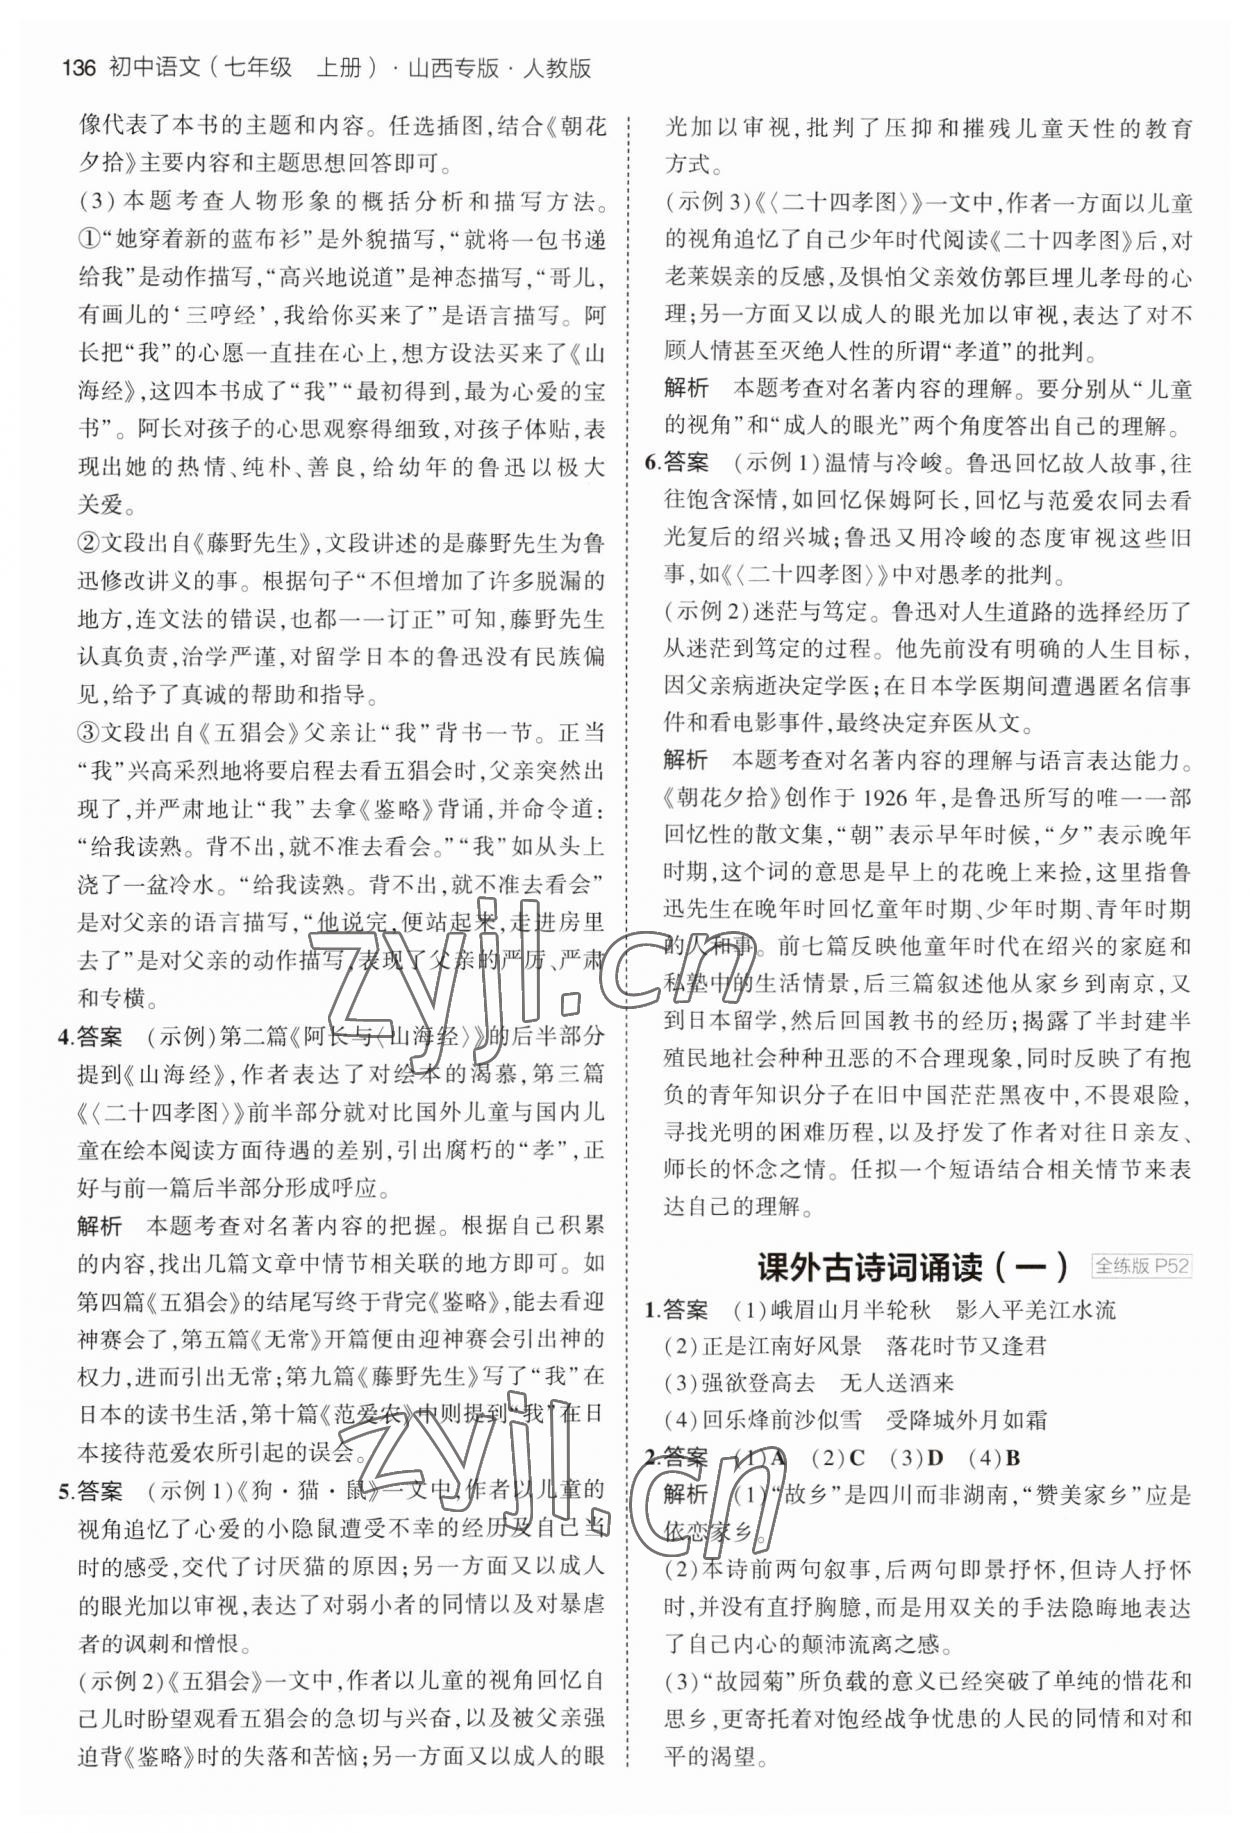 136 初中语文(七年级　上册)·山西专版·人教版
像代表了本书的主题和内容。任选插图,结合《朝花
夕拾》主要内容和主题思想回答即可。
(3)本题考查人物形象的概括分析和描写方法。
①“她穿着新的蓝布衫”是外貌描写,“就将一包书递
给我”是动作描写,“高兴地说道”是神态描写,“哥儿,
有画儿的‘三哼经’,我给你买来了”是语言描写。阿
长把“我”的心愿一直挂在心上,想方设法买来了《山
海经》,这四本书成了“我”“最初得到,最为心爱的宝
书”。阿长对孩子的心思观察得细致,对孩子体贴,表
现出她的热情、纯朴、善良,给幼年的鲁迅以极大
关爱。
②文段出自《藤野先生》,文段讲述的是藤野先生为鲁
迅修改讲义的事。根据句子“不但增加了许多脱漏的
地方,连文法的错误,也都一一订正”可知,藤野先生
认真负责,治学严谨,对留学日本的鲁迅没有民族偏
见,给予了真诚的帮助和指导。
③文段出自《五猖会》父亲让“我”背书一节。正当
“我”兴高采烈地将要启程去看五猖会时,父亲突然出
现了,并严肃地让“我”去拿《鉴略》背诵,并命令道:
“给我读熟。背不出,就不准去看会。”“我”如从头上
浇了一盆冷水。“给我读熟。背不出,就不准去看会”
是对父亲的语言描写,“他说完,便站起来,走进房里
去了”是对父亲的动作描写,表现了父亲的严厉、严肃
和专横。
4.答案　(示例)第二篇《阿长与〈山海经〉》的后半部分
提到《山海经》,作者表达了对绘本的渴慕,第三篇
《〈二十四孝图〉》前半部分就对比国外儿童与国内儿
童在绘本阅读方面待遇的差别,引出腐朽的“孝”,正
好与前一篇后半部分形成呼应。
解析　本题考查对名著内容的把握。根据自己积累
的内容,找出几篇文章中情节相关联的地方即可。如
第四篇《五猖会》的结尾写终于背完《鉴略》,能去看迎
神赛会了,第五篇《无常》开篇便由迎神赛会引出神的
权力,进而引出无常;第九篇《藤野先生》写了“我”在
日本的读书生活,第十篇《范爱农》中则提到“我”在日
本接待范爱农所引起的误会。
5.答案　(示例1)《狗·猫·鼠》一文中,作者以儿童的
视角追忆了心爱的小隐鼠遭受不幸的经历及自己当
时的感受,交代了讨厌猫的原因;另一方面又以成人
的眼光加以审视,表达了对弱小者的同情以及对暴虐
者的讽刺和憎恨。
(示例2)《五猖会》一文中,作者以儿童的视角回忆自
己儿时盼望观看五猖会的急切与兴奋,以及被父亲强
迫背《鉴略》时的失落和苦恼;另一方面又以成人的眼
光加以审视,批判了压抑和摧残儿童天性的教育
方式。
(示例3)《〈二十四孝图〉》一文中,作者一方面以儿童
的视角追忆了自己少年时代阅读《二十四孝图》后,对
老莱娱亲的反感,及惧怕父亲效仿郭巨埋儿孝母的心
理;另一方面又以成人的眼光加以审视,表达了对不
顾人情甚至灭绝人性的所谓“孝道”的批判。
解析　本题考查对名著内容的理解。要分别从“儿童
的视角”和“成人的眼光”两个角度答出自己的理解。
6.答案　(示例1)温情与冷峻。鲁迅回忆故人故事,往
往饱含深情,如回忆保姆阿长,回忆与范爱农同去看
光复后的绍兴城;鲁迅又用冷峻的态度审视这些旧
事,如《〈二十四孝图〉》中对愚孝的批判。
(示例2)迷茫与笃定。鲁迅对人生道路的选择经历了
从迷茫到笃定的过程。他先前没有明确的人生目标,
因父亲病逝决定学医;在日本学医期间遭遇匿名信事
件和看电影事件,最终决定弃医从文。
解析　本题考查对名著内容的理解与语言表达能力。
《朝花夕拾》创作于1926年,是鲁迅所写的唯一一部
回忆性的散文集,“朝”表示早年时候,“夕”表示晚年
时期,这个词的意思是早上的花晚上来捡,这里指鲁
迅先生在晚年时回忆童年时期、少年时期、青年时期
的人和事。前七篇反映他童年时代在绍兴的家庭和
私塾中的生活情景,后三篇叙述他从家乡到南京,又
到日本留学,然后回国教书的经历;揭露了半封建半
殖民地社会种种丑恶的不合理现象,同时反映了有抱
负的青年知识分子在旧中国茫茫黑夜中,不畏艰险,
寻找光明的困难历程,以及抒发了作者对往日亲友、
师长的怀念之情。任拟一个短语结合相关情节来表
达自己的理解。
课外古诗词诵读(一)　全练版 P52
1.答案　(1)峨眉山月半轮秋　影入平羌江水流
(2)正是江南好风景　落花时节又逢君
(3)强欲登高去　无人送酒来
(4)回乐烽前沙似雪　受降城外月如霜
2.答案　(1)A　(2)C　(3)D　(4)B
解析　(1)“故乡”是四川而非湖南,“赞美家乡”应是
依恋家乡。
(2)本诗前两句叙事,后两句即景抒怀,但诗人抒怀
时,并没有直抒胸臆,而是用双关的手法隐晦地表达
了自己内心的颠沛流离之感。
(3)“故园菊”所负载的意义已经突破了单纯的惜花和
思乡,更寄托着对饱经战争忧患的人民的同情和对和
平的渴望。
zyjl.cn
zyjl.cn